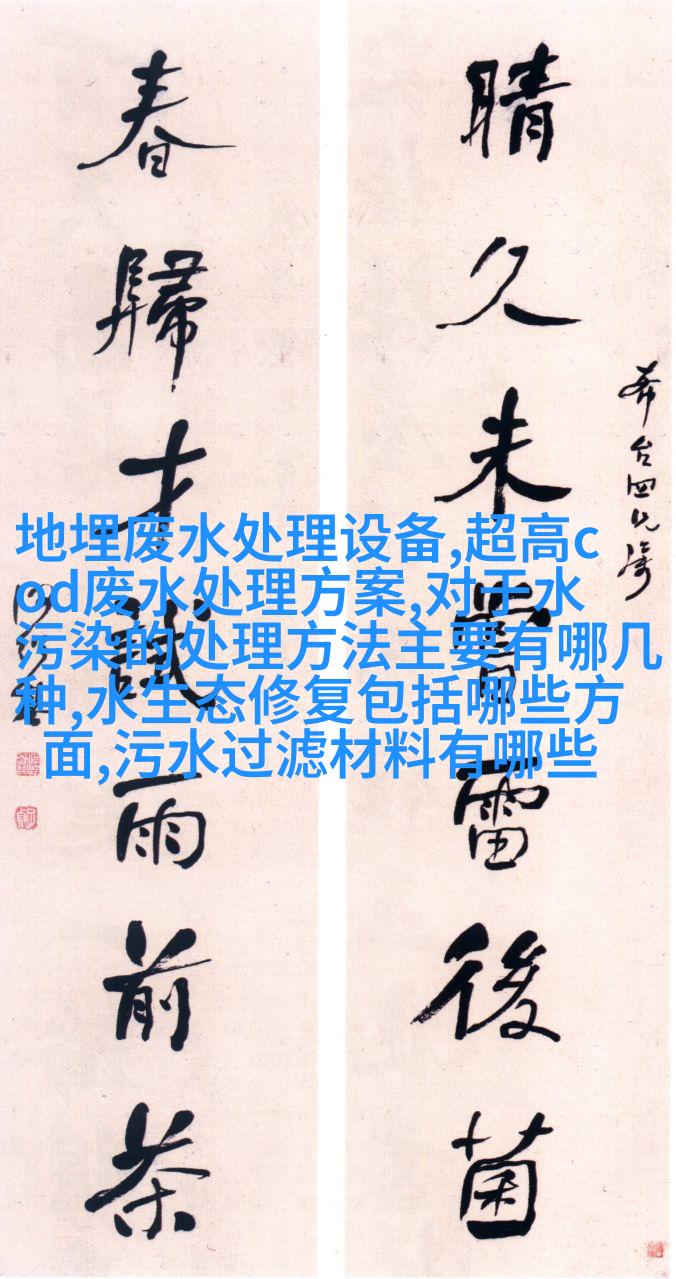 晴久未嘗雷後菌
台四兄
春歸才試雨前茶
地埋废水处理设备,超高c
od废水处理方案,对于水
污染的处理方法主要有哪几
种,水生态修复包括哪些方
面,污水过滤材料有哪些